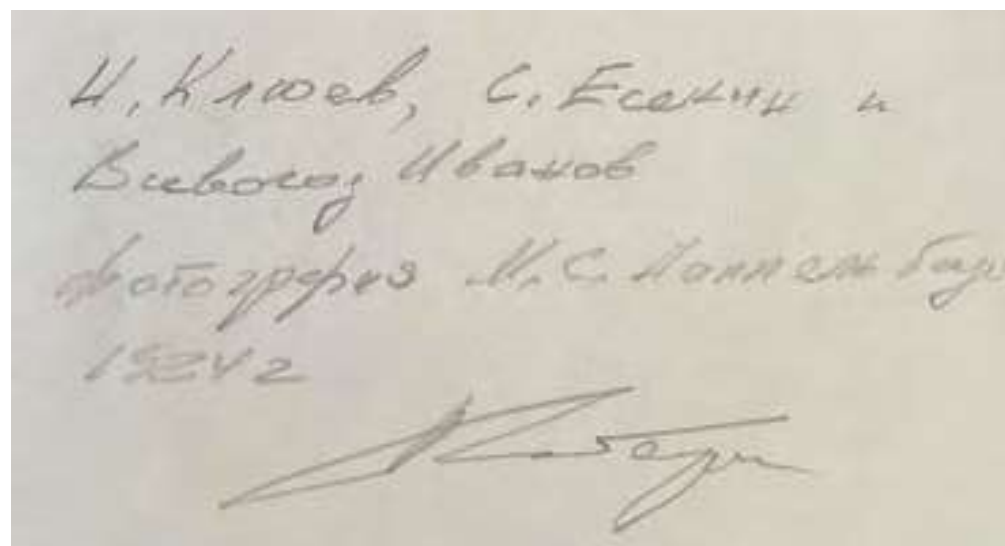 Н. Клюев, С. Есенин и
Всеволод Иванов
фотография М.С. Наппельбаум
1924 г